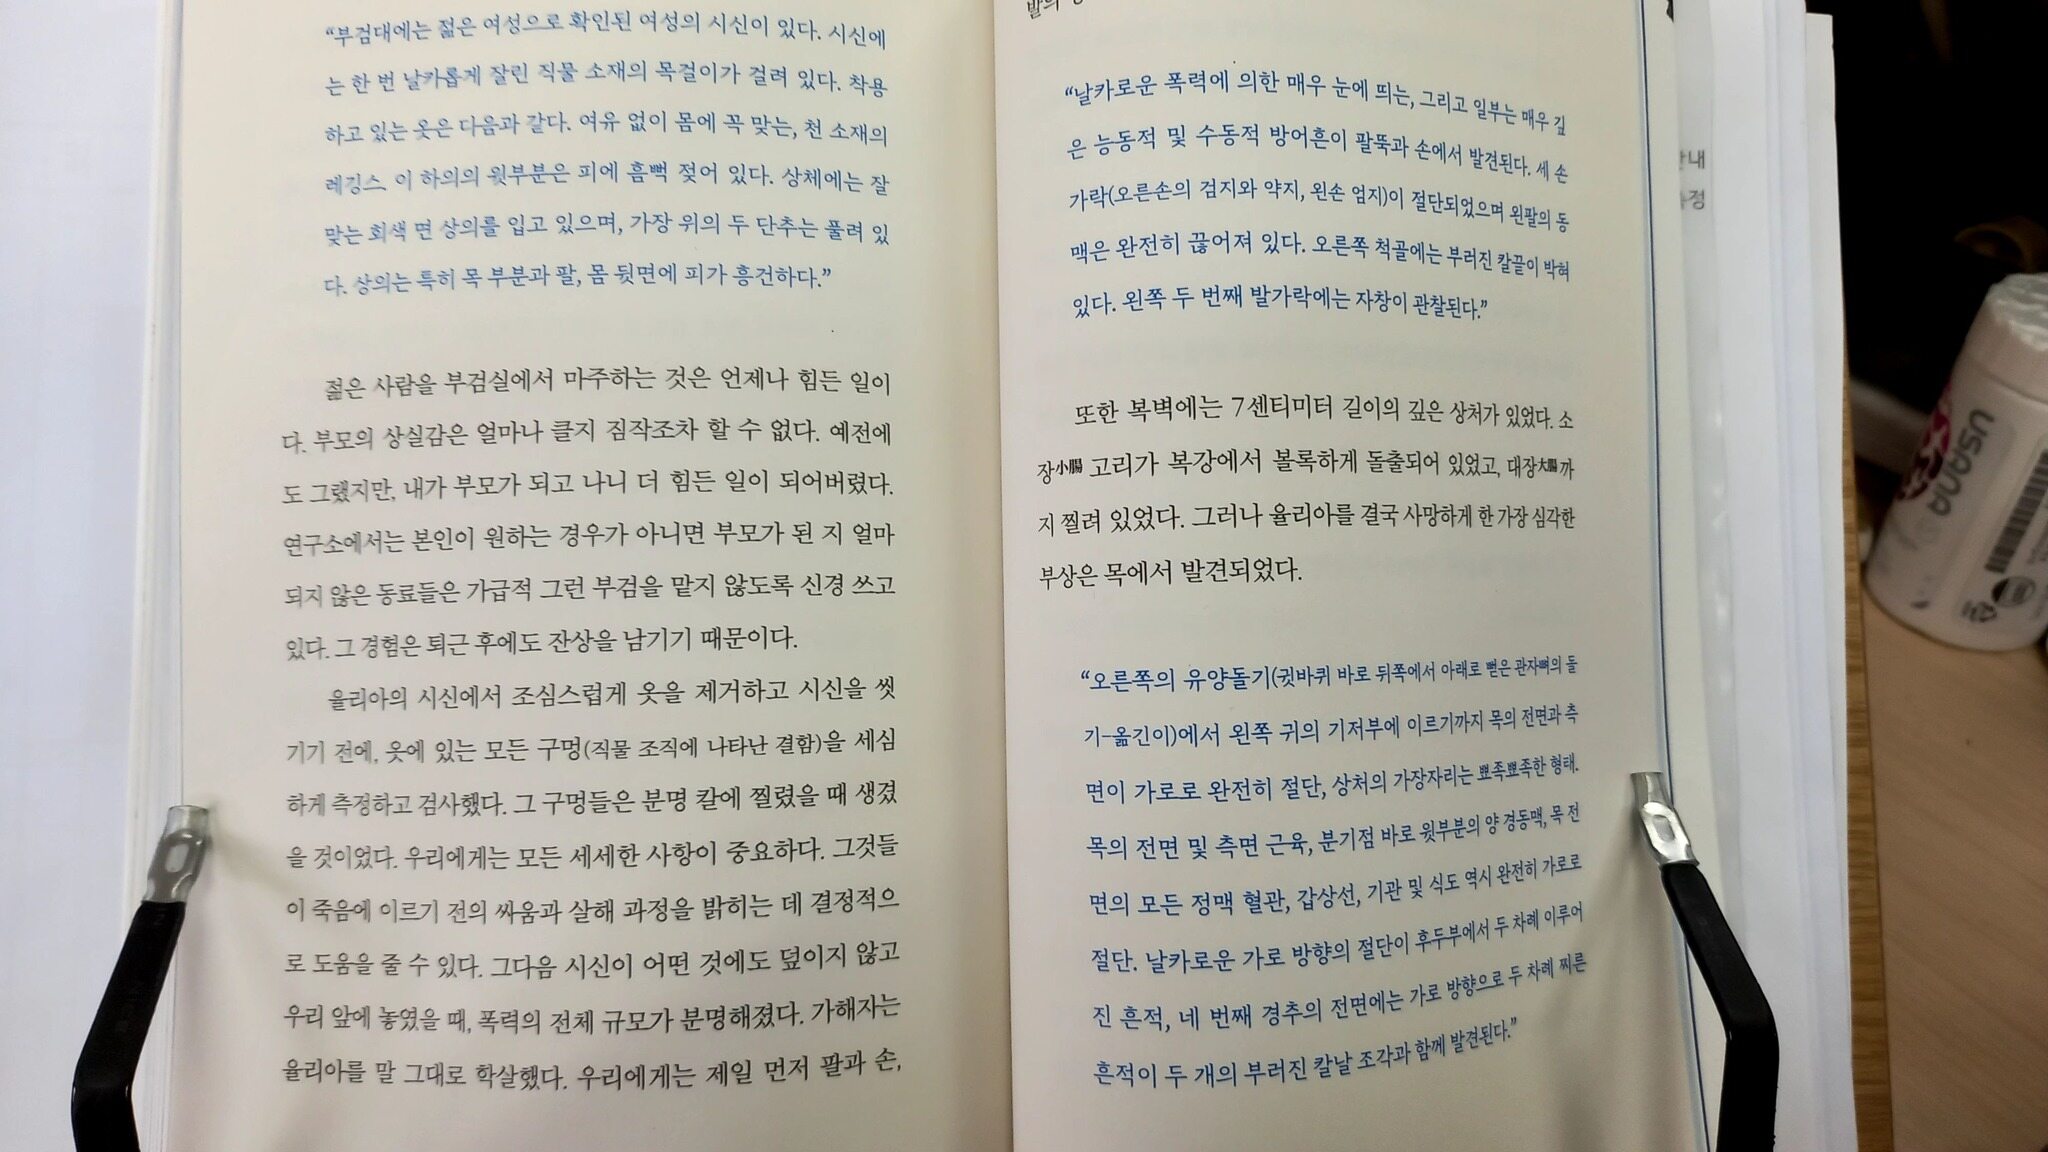 “부검대에는 젊은 여성으로 확인된 여성의 시신이 있다. 시신에
는 한 번 날카롭게 잘린 직물 소재의 목걸이가 걸려 있다. 착용
하고 있는 옷은 다음과 같다. 여유 없이 몸에 꼭 맞는, 천 소재의
레깅스. 이 하의의 윗부분은 피에 흠뻑 젖어 있다. 상체에는 잘
맞는 회색 면 상의를 입고 있으며, 가장 위의 두 단추는 풀려 있
다. 상의는 특히 목 부분과 팔, 몸 뒷면에 피가 흥건하다.”
젊은 사람을 부검실에서 마주하는 것은 언제나 힘든 일이
다. 부모의 상실감은 얼마나 클지 짐작조차 할 수 없다. 예전에
도 그랬지만, 내가 부모가 되고 나니 더 힘든 일이 되어버렸다.
연구소에서는 본인이 원하는 경우가 아니면 부모가 된 지 얼마
되지 않은 동료들은 가급적 그런 부검을 맡지 않도록 신경 쓰고
있다. 그 경험은 퇴근 후에도 잔상을 남기기 때문이다.
율리아의 시신에서 조심스럽게 옷을 제거하고 시신을 씻
기기 전에, 옷에 있는 모든 구멍(직물 조직에 나타난 결함)을 세심
하게 측정하고 검사했다. 그 구멍들은 분명 칼에 찔렸을 때 생겼
을 것이었다. 우리에게는 모든 세세한 사항이 중요하다. 그것들
이 죽음에 이르기 전의 싸움과 살해 과정을 밝히는 데 결정적으
로 도움을 줄 수 있다. 그다음 시신이 어떤 것에도 덮이지 않고
우리 앞에 놓였을 때, 폭력의 전체 규모가 분명해졌다. 가해자는
율리아를 말 그대로 학살했다. 우리에게는 제일 먼저 팔과 손,
발의
“날카로운 폭력에 의한 매우 눈에 띄는, 그리고 일부는 매우 깊
은 능동적 및 수동적 방어흔이 팔뚝과 손에서 발견된다. 세 손
가락(오른손의 검지와 약지, 왼손 엄지)이 절단되었으며 왼팔의 동
맥은 완전히 끊어져 있다. 오른쪽 척골에는 부러진 칼끝이 박혀
있다. 왼쪽 두 번째 발가락에는 자창이 관찰된다.”
또한 복벽에는 7센티미터 길이의 깊은 상처가 있었다. 소
장小腸 고리가 복강에서 볼록하게 돌출되어 있었고, 대장大腸까
지 찔려 있었다. 그러나 율리아를 결국 사망하게 한 가장 심각한
부상은 목에서 발견되었다.
“오른쪽의 유양돌기(귓바퀴 바로 뒤쪽에서 아래로 뻗은 관자뼈의 돌
기-옮긴이)에서 왼쪽 귀의 기저부에 이르기까지 목의 전면과 측
면이 가로로 완전히 절단, 상처의 가장자리는 뾰족뾰족한 형태.
목의 전면 및 측면 근육, 분기점 바로 윗부분의 양 경동맥, 목 전
면의 모든 정맥 혈관, 갑상선, 기관 및 식도 역시 완전히 가로로
절단. 날카로운 가로 방향의 절단이 후두부에서 두 차례 이루어
진 흔적, 네 번째 경추의 전면에는 가로 방향으로 두 차례 찌른
흔적이 두 개의 부러진 칼날 조각과 함께 발견된다.”
안내
USANA